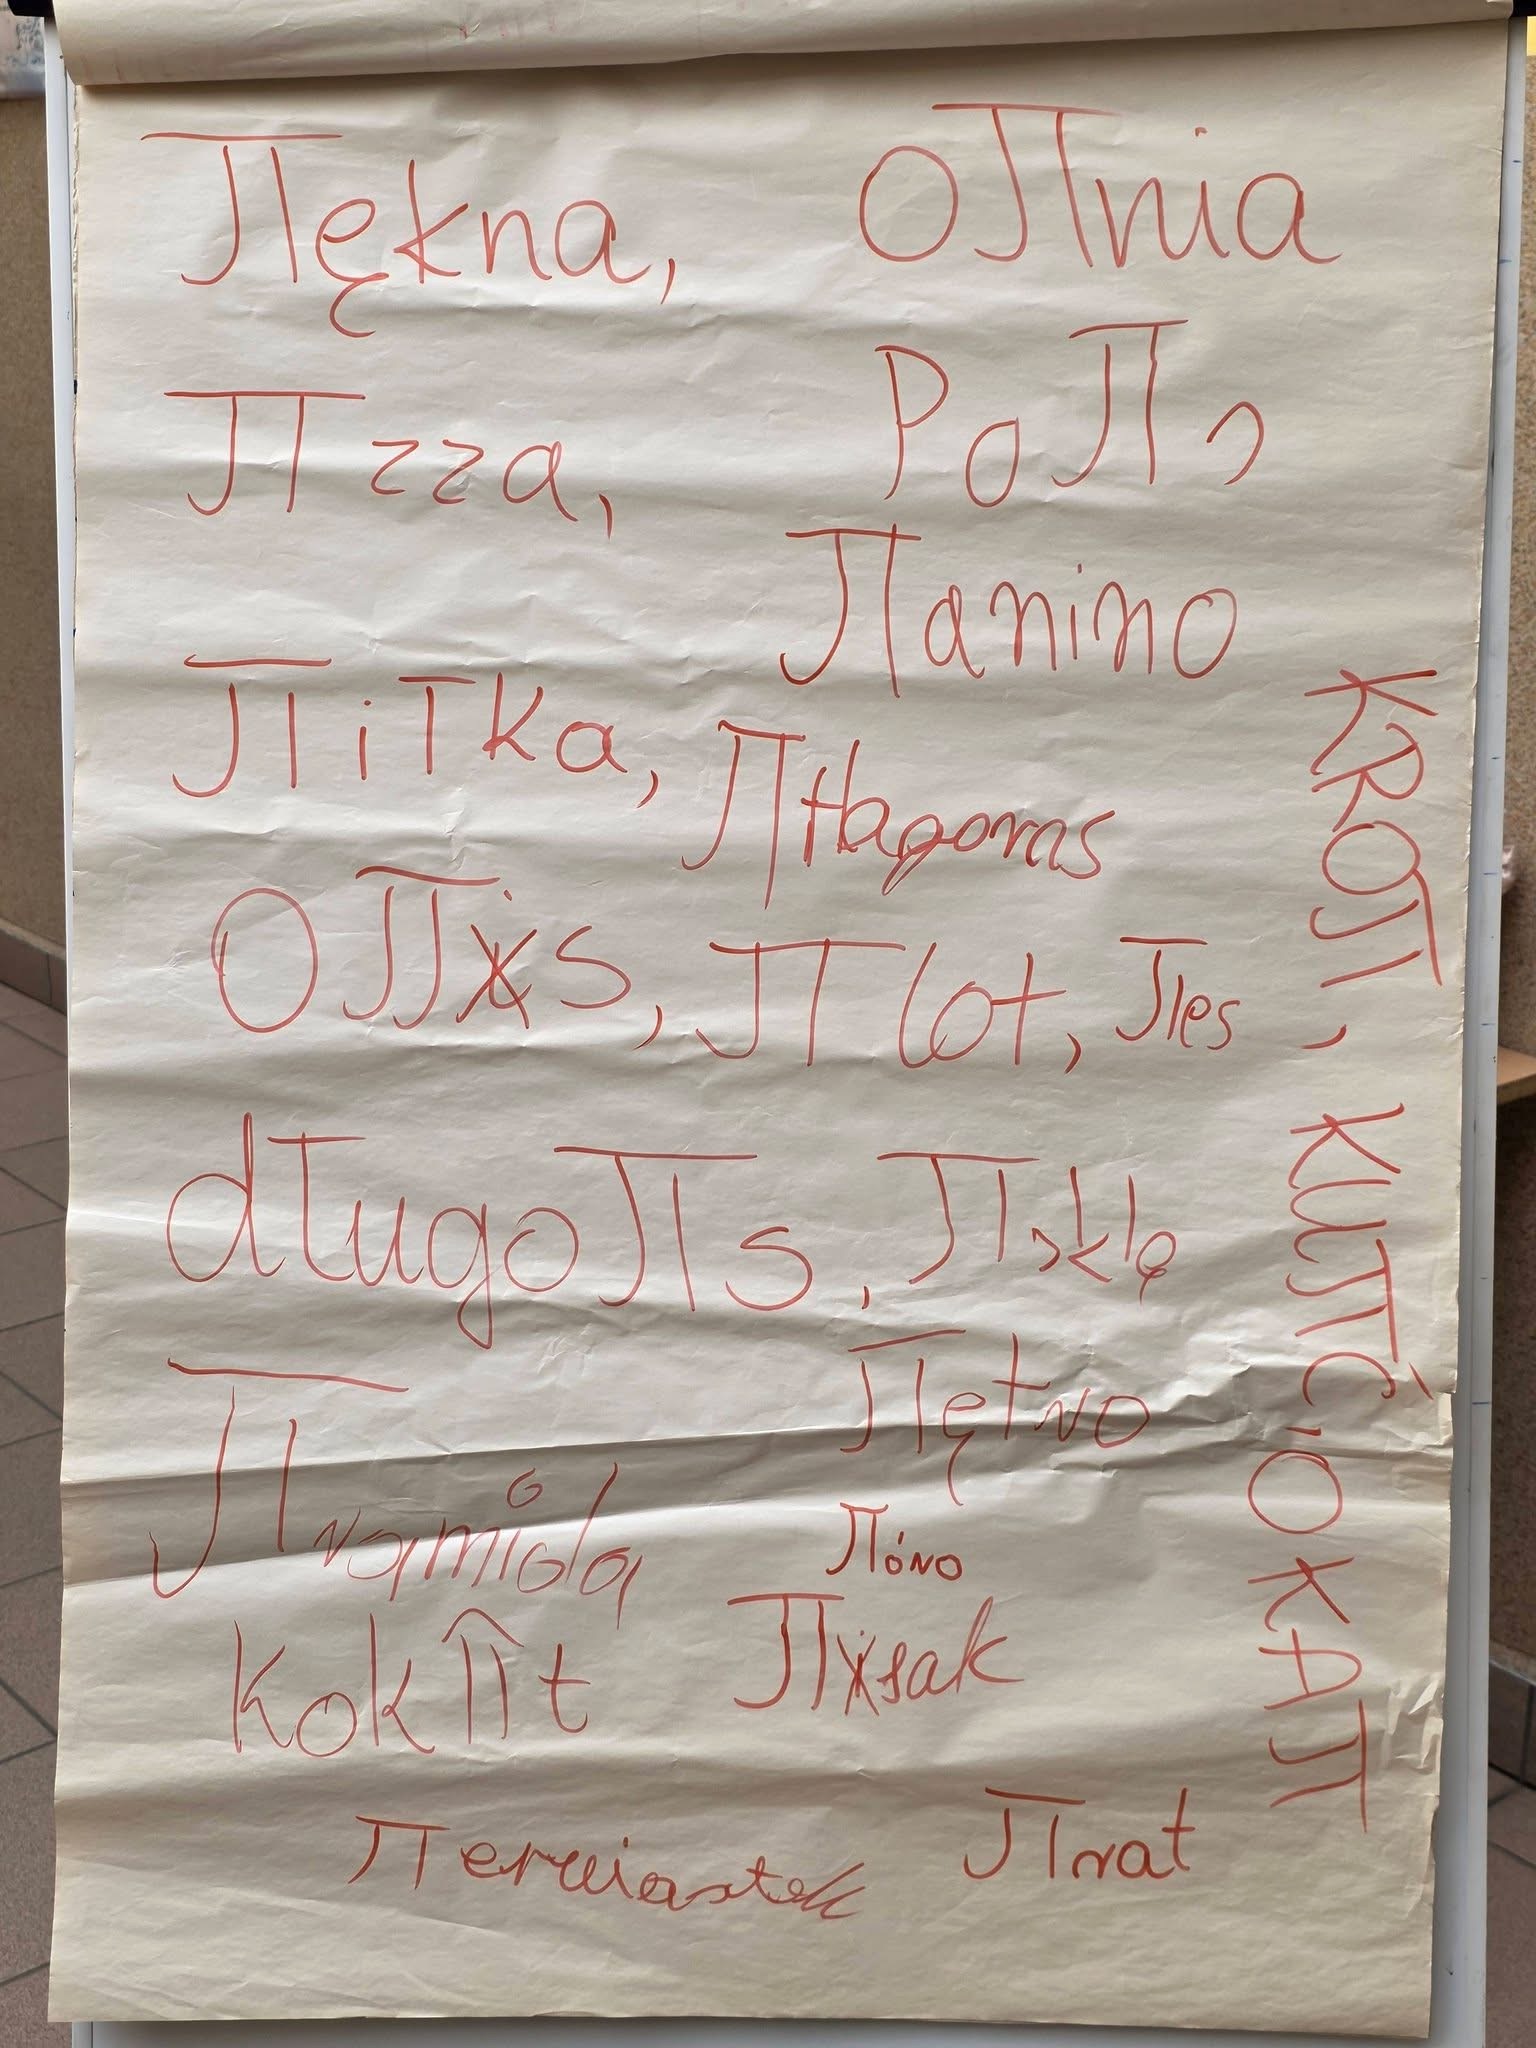 πękna, oπnia
πzza, Poπs
πanino
πiTka, πtagoras
Oππs, πlot, πes
dŁugoπs, πskle
πętno
πramida πóno
kokπt πsak
πerwiastek πrat
KROπ, KUπĆIOKAπ